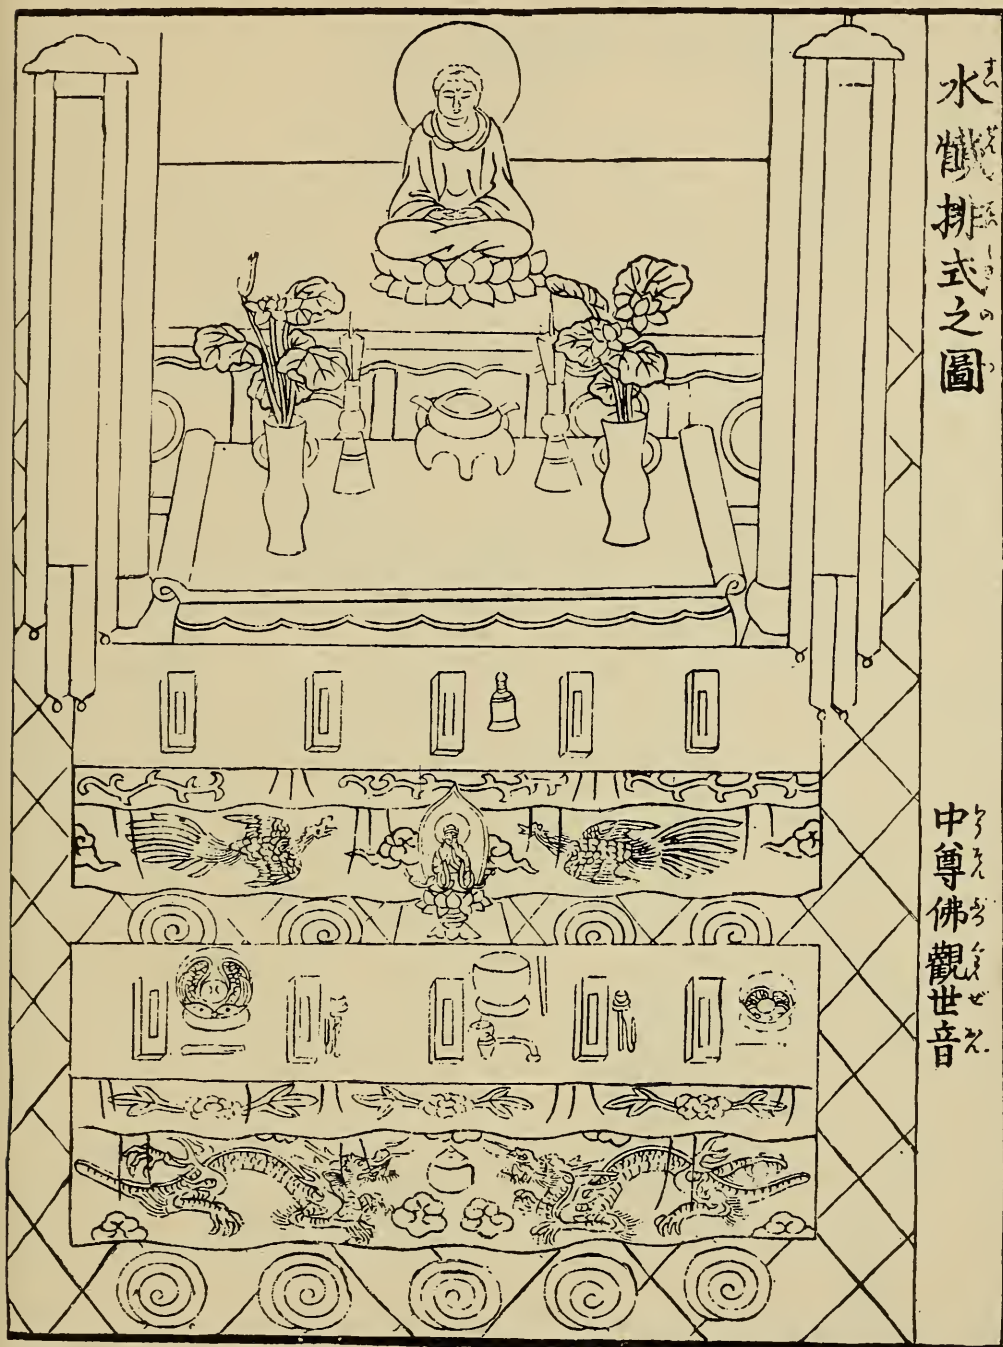 水懺排式之圖
中尊佛觀世音